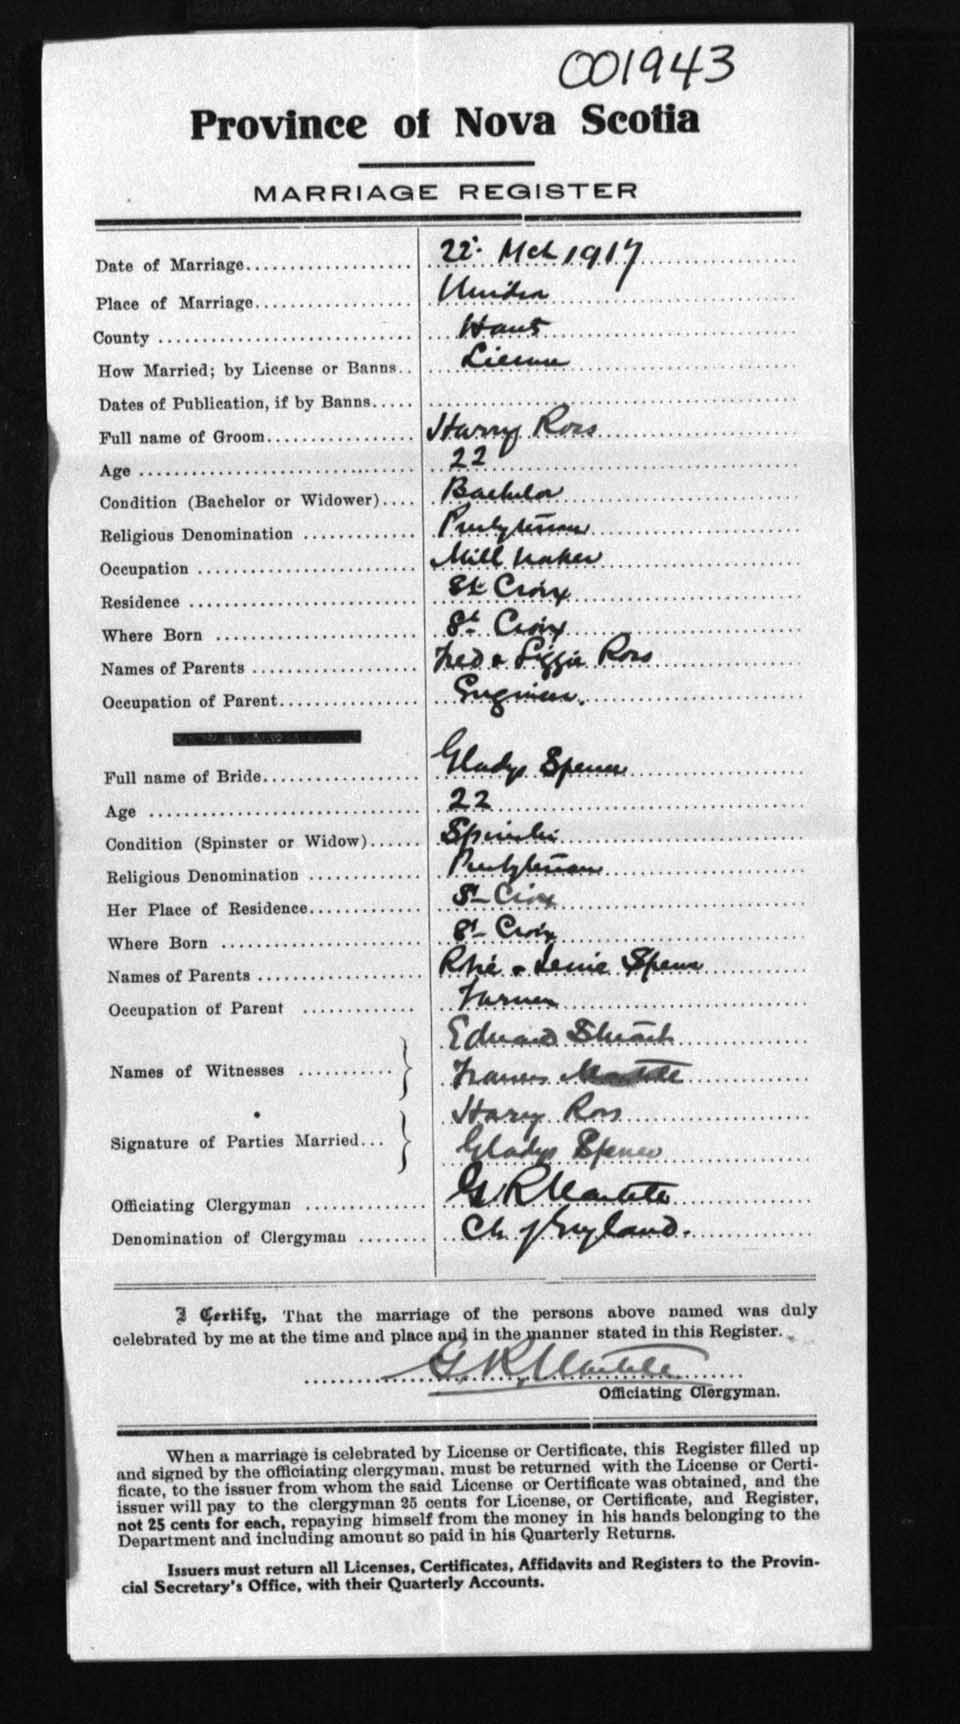 001943
Province of Nova Scotia
MARRIAGE REGISTER
Date of Marriage 22. Mch 1917
Place of Marriage Windsor
County Hants
How Married; by License or Banns License
Dates of Publication, if by Banns
Full name of Groom Harry Ross
Age 22
Condition (Bachelor or Widower) Bachelor
Religious Denomination Presbyterian
Occupation Mill
Residence St Croix
Where Born St Croix
Names of Parents Fred & Lizzie Ross
Occupation of Parent Engineer.
Full name of Bride Gladys Spence
Age 22
Condition (Spinster or Widow) Spinster
Religious Denomination Presbyterian
Her Place of Residence St Croix
Where Born St Croix
Names of Parents & Spence
Occupation of Parent Farmer
Names of Witnesses Edward
Frances
Signature of Parties Married Harry Ross
Gladys Spence
Officiating Clergyman G. R. Martell
Denomination of Clergyman Ch of England.
I Certify, That the marriage of the persons above named was duly
celebrated by me at the time and place and in the manner stated in this Register.
G. R. Martell
Officiating Clergyman.
When a marriage is celebrated by License or Certificate, this Register filled up
and signed by the officiating clergyman, must be returned with the License or Certi-
ficate, to the issuer from whom the said License or Certificate was obtained, and the
issuer will pay to the clergyman 25 cents for License, or Certificate, and Register,
not 25 cents for each, repaying himself from the money in his hands belonging to the
Department and including amount so paid in his Quarterly Returns.
Issuers must return all Licenses, Certificates, Affidavits and Registers to the Provin-
cial Secretary's Office, with their Quarterly Accounts.